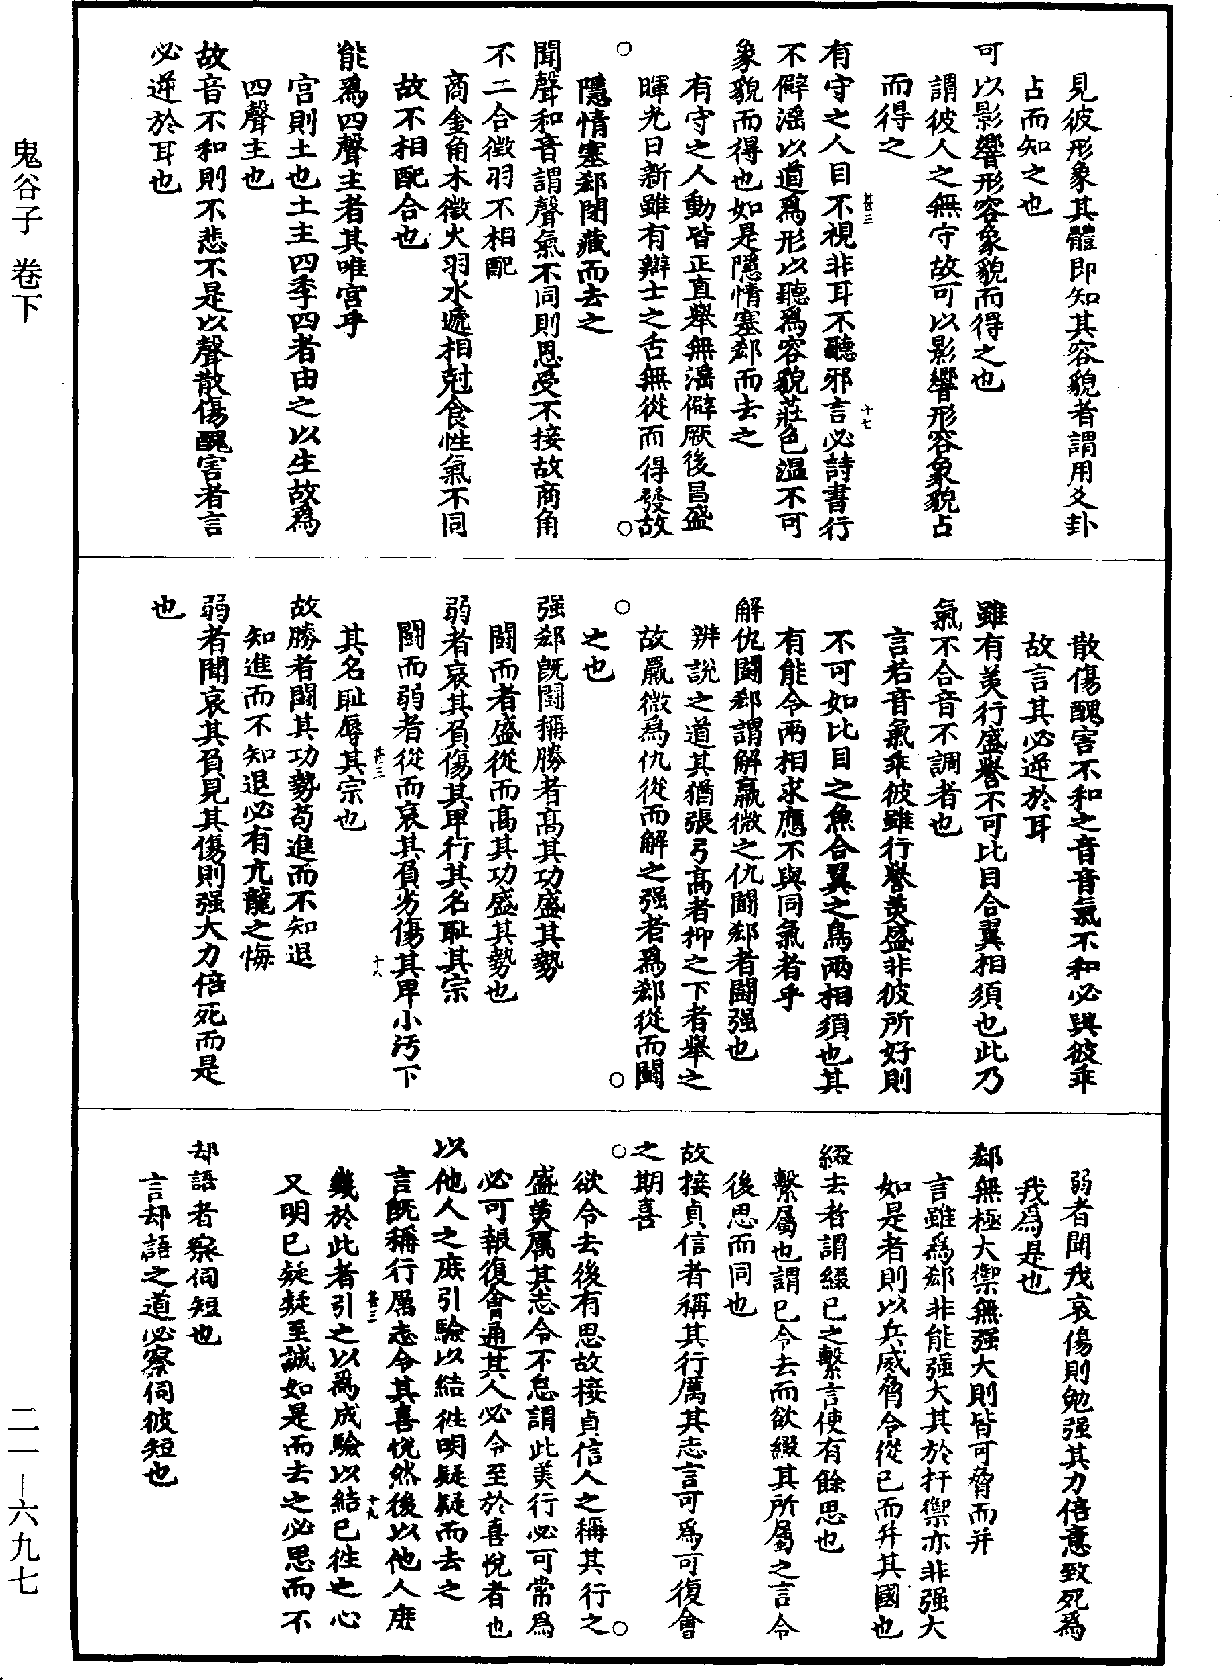 鬼谷子 卷下
見彼形象其體即知其容貌者謂用爻卦
占而知之也
可以影響形容象貌而得之也
謂彼人之無守故可以影響形容象貌占
而得之
有守之人目不視非耳不聽邪言必詩書行
不僻滛以道爲形以聽爲容貌莊色温不可
象貌而得也如是隱情塞郄而去之
有守之人動皆正直舉無滛僻厥後昌盛
暉光日新雖有辯士之舌無從而得發故
隱情塞郄閉藏而去之
聞聲和音謂聲氣不同則恩受不接故商角
不二合徵羽不相配
商金角木徵火羽水遞相尅食性氣不同
故不相配合也
能爲四聲主者其唯宫乎
宫則土也土主四季四者由之以生故爲
四聲主也
故音不和則不悲不是以聲散傷醜害者言
必逆於耳也
甚三
十七
散傷醜害不和之音音氣不和必與彼乖
故言其必逆於耳
雖有美行盛譽不可比目合翼相須也此乃
氣不合音不調者也
言若音氣乖彼雖行譽美盛非彼所好則
不可如比目之魚合翼之鳥兩相須也其
有能令兩相求應不與同氣者乎
解仇鬭郄謂解羸微之仇鬭郄者鬭强也
辨說之道其猶張弓高者抑之下者舉之
故羸微爲仇從而解之强者爲郄從而鬭
之也
强郄旣鬭稱勝者髙其功盛其勢
鬭而者盛從而髙其功盛其勢也
弱者哀其負傷其卑行其名耻其宗
鬭而弱者從而哀其負劣傷其卑小汚下
其名耻辱其宗也
故勝者鬭其功勢苟進而不知退
知進而不知退必有亢龍之悔
弱者聞哀其負見其傷則强大力倍死而是
也
甚三
十八
弱者聞我哀傷則勉强其力倍意致死爲
我爲是也
郄無極大禦無强大則皆可脅而并
言雖爲郄非能强大其於扞禦亦非强大
如是者則以兵威脅令從已而并其國也
綴去者謂綴已之繫言使有餘思也
繫屬也謂已令去而欲綴其所屬之言令
後思而同也
故接貞信者稱其行厲其志言可爲可復會
之期喜
欲令去後有思故接貞信人之稱其行之
盛美厲其志令不怠謂此美行必可常爲
必可報復會通其人必令至於喜悅者也
以他人之庶引驗以結徃明疑疑而去之
言旣稱行厲志令其喜悅然後以他人庶
幾於此者引之以爲成驗以結已徃之心
又明已疑疑至誠如是而去之必思而不
却語者察伺短也
言却語之道必察伺彼短也
甚三
十九
二一－六九七